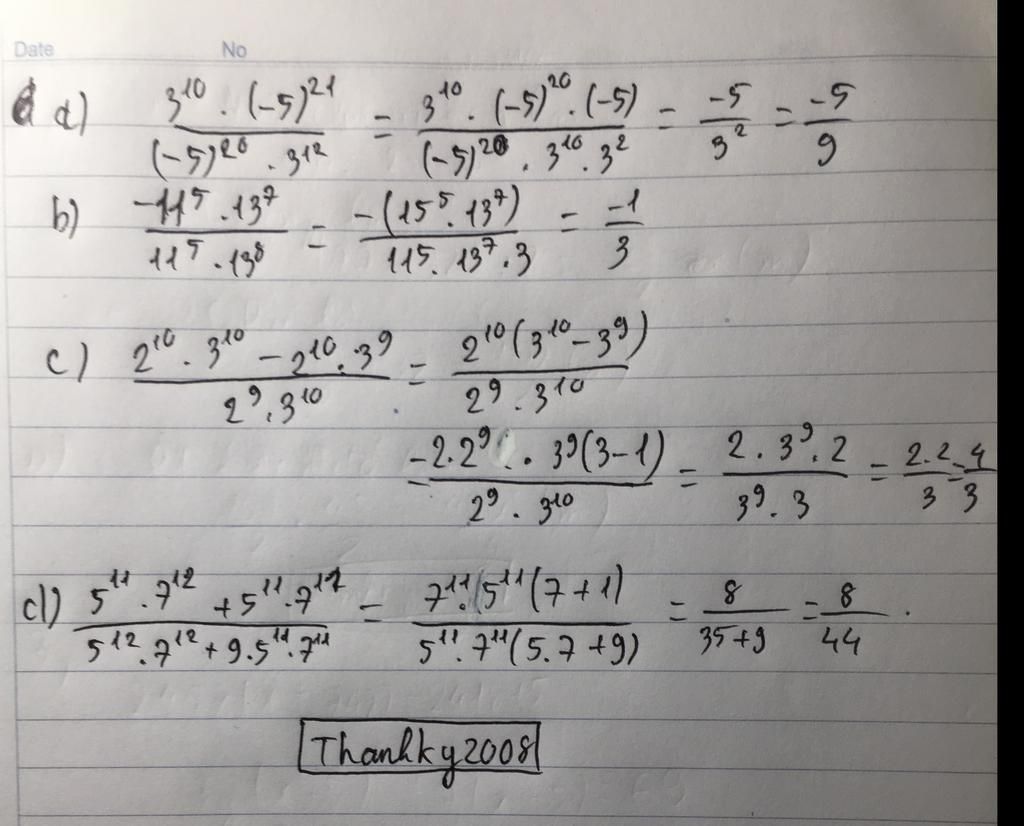 Date No
a) \frac{3^{10} . (-5)^{21}}{(-5)^{20} . 3^{12}} = \frac{3^{10} . (-5)^{20} . (-5)}{(-5)^{20} . 3^{10} . 3^{2}} = \frac{-5}{3^{2}} = \frac{-5}{9}
b) \frac{-11^{5} . 13^{7}}{11^{5} . 13^{8}} = \frac{-(15^{5} . 13^{7})}{11^{5} . 13^{7} . 3} = \frac{-1}{3}
c) \frac{2^{10} . 3^{10} - 2^{10} . 3^{9}}{2^{9} . 3^{10}} = \frac{2^{10} (3^{10} - 3^{9})}{2^{9} . 3^{10}}
= \frac{2 . 2^{9} . 3^{9} (3-1)}{2^{9} . 3^{10}} = \frac{2 . 3^{9} . 2}{3^{9} . 3} = \frac{2.2}{3} = \frac{4}{3}
d) \frac{5^{11} . 7^{12} + 5^{11} . 7^{11}}{5^{12} . 7^{12} + 9 . 5^{11} . 7^{11}} = \frac{7^{11} . 5^{11} (7+1)}{5^{11} . 7^{11} (5.7+9)} = \frac{8}{35+9} = \frac{8}{44} .
Thanhky2008